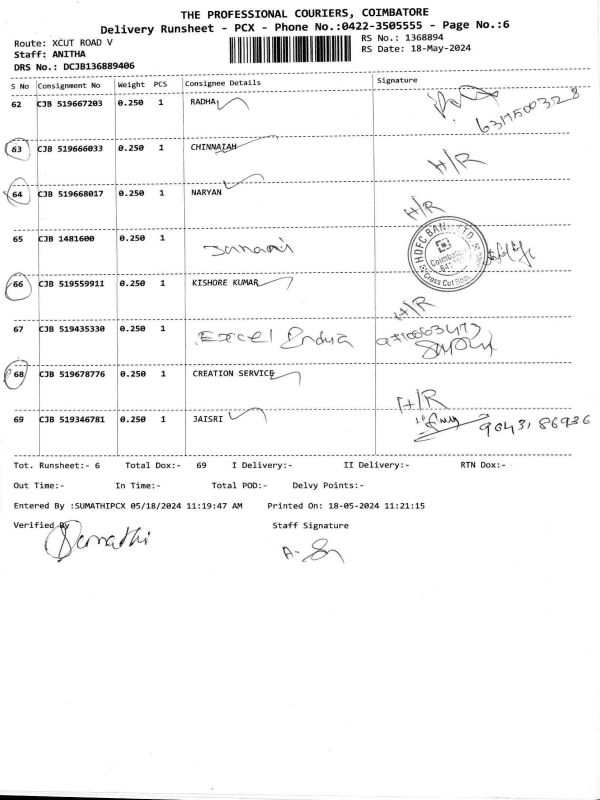 THE PROFESSIONAL COURIERS, COIMBATORE
Delivery Runsheet - PCX - Phone No.:0422-3505555 - Page No.:6
Route: XCUT ROAD V RS No.: 1368894
Staff: ANITHA RS Date: 18-May-2024
DRS No.: DCJB136889406
S No Consignment No Weight PCS Consignee Details Signature
62 CJB 519667203 0.250 1 RADHA
63 CJB 519666033 0.250 1 CHINNAIAH H/R
64 CJB 519668017 0.250 1 NARYAN H/R
65 CJB 1481600 0.250 1 HDFC BANK LTD Coimbatore Cross Cut Road
66 CJB 519559911 0.250 1 KISHORE KUMAR H/R
67 CJB 519435330 0.250 1 Excel India
68 CJB 519678776 0.250 1 CREATION SERVICE H/R
69 CJB 519346781 0.250 1 JAISRI 9043186936
Tot. Runsheet:- 6 Total Dox:- 69 I Delivery:- II Delivery:- RTN Dox:-
Out Time:- In Time:- Total POD:- Delvy Points:-
Entered By :SUMATHIPCX 05/18/2024 11:19:47 AM Printed On: 18-05-2024 11:21:15
Verified By Staff Signature
Sumathi